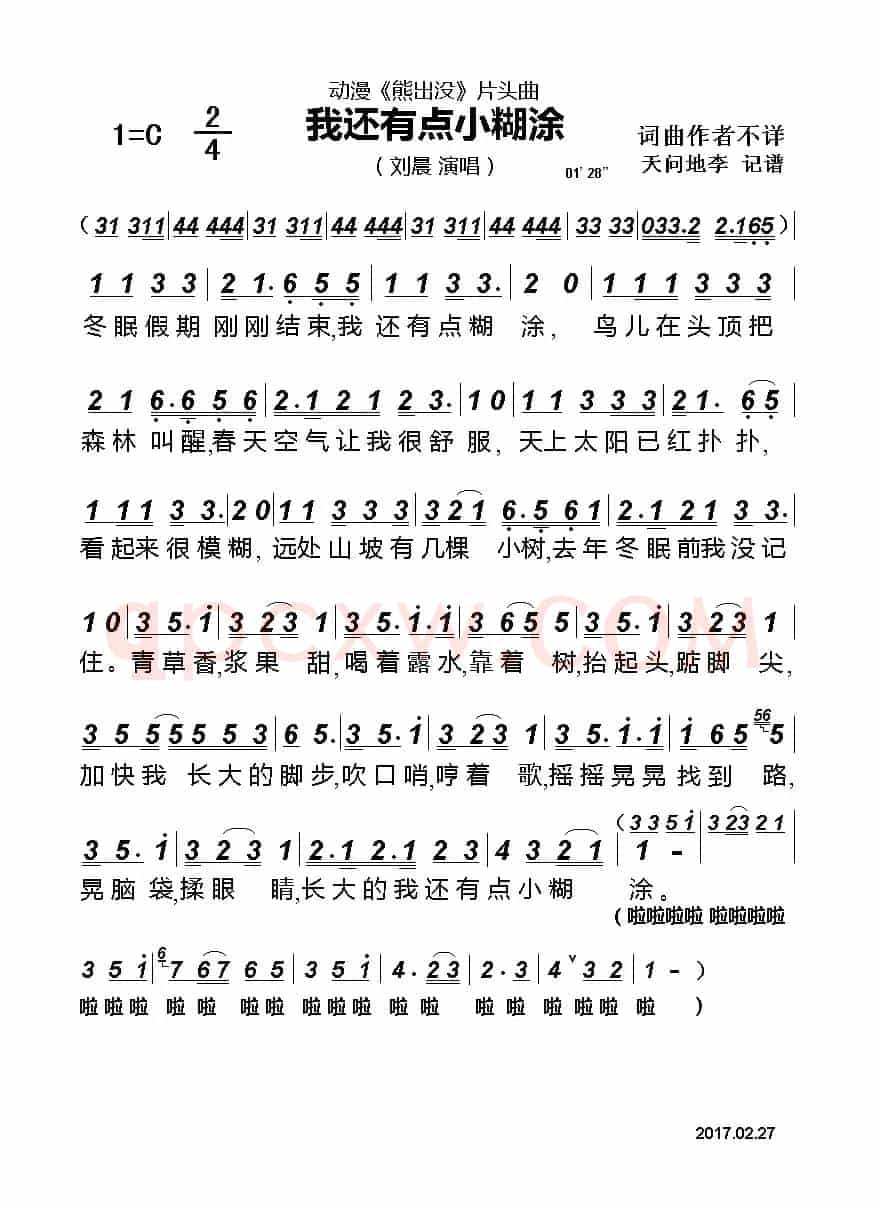 动漫《熊出没》片头曲
我还有点小糊涂
1=C 2/4
词曲作者不详
（刘晨 演唱）
01’28”
天问地李 记谱
（31 311|44 444|31 311|44 444|31 311|44 444|33 33|033.2 2.165）|
1 1 3 3|2 1. 6 5 5|1 1 3 3.|2 0|1 1 1 3 3 3|
冬眠假期 刚刚结束,我 还有点糊 涂, 鸟儿在头顶把
2 1 6.6 5 6|2.1 2 1 2 3.|1 0|1 1 3 3 3|2 1. 6 5|
森林 叫醒,春天空气让我很舒 服, 天上太阳已红扑扑,
1 1 1 3 3.|2 0|1 1 3 3 3|3 2 1 6.5 6 1|2.1 2 1 3 3.|
看起来很模糊, 远处山坡有几棵 小树,去年冬眠前我没记
1 0|3 5.1|3 2 3 1|3 5.1.1|3 6 5 5|3 5.1|3 2 3 1|
住。青草香,浆果 甜,喝着露水,靠着 树,抬起头,踮脚 尖,
qpcxw.COM
3 5 5 5 5 5 3|6 5.|3 5.1|3 2 3 1|3 5.1.1|1 6 5 56 5|
加快我 长大的脚步,吹口哨,哼着 歌,摇摇晃晃找到 路,
（3 3 5 1|3 23 2 1|
3 5.1|3 2 3 1|2.1 2.1 2 3|4 3 2 1|1 -|
晃脑 袋,揉眼 睛,长大的我还有点小糊 涂。
（啦啦啦啦 啦啦啦啦
3 5 1|6 7 6 7 6 5|3 5 1|4. 2 3|2. 3|4 ∨ 3 2|1 - ）
啦啦啦 啦 啦 啦啦 啦啦啦 啦 啦 啦 啦 啦啦啦 啦 ）
2017.02.27